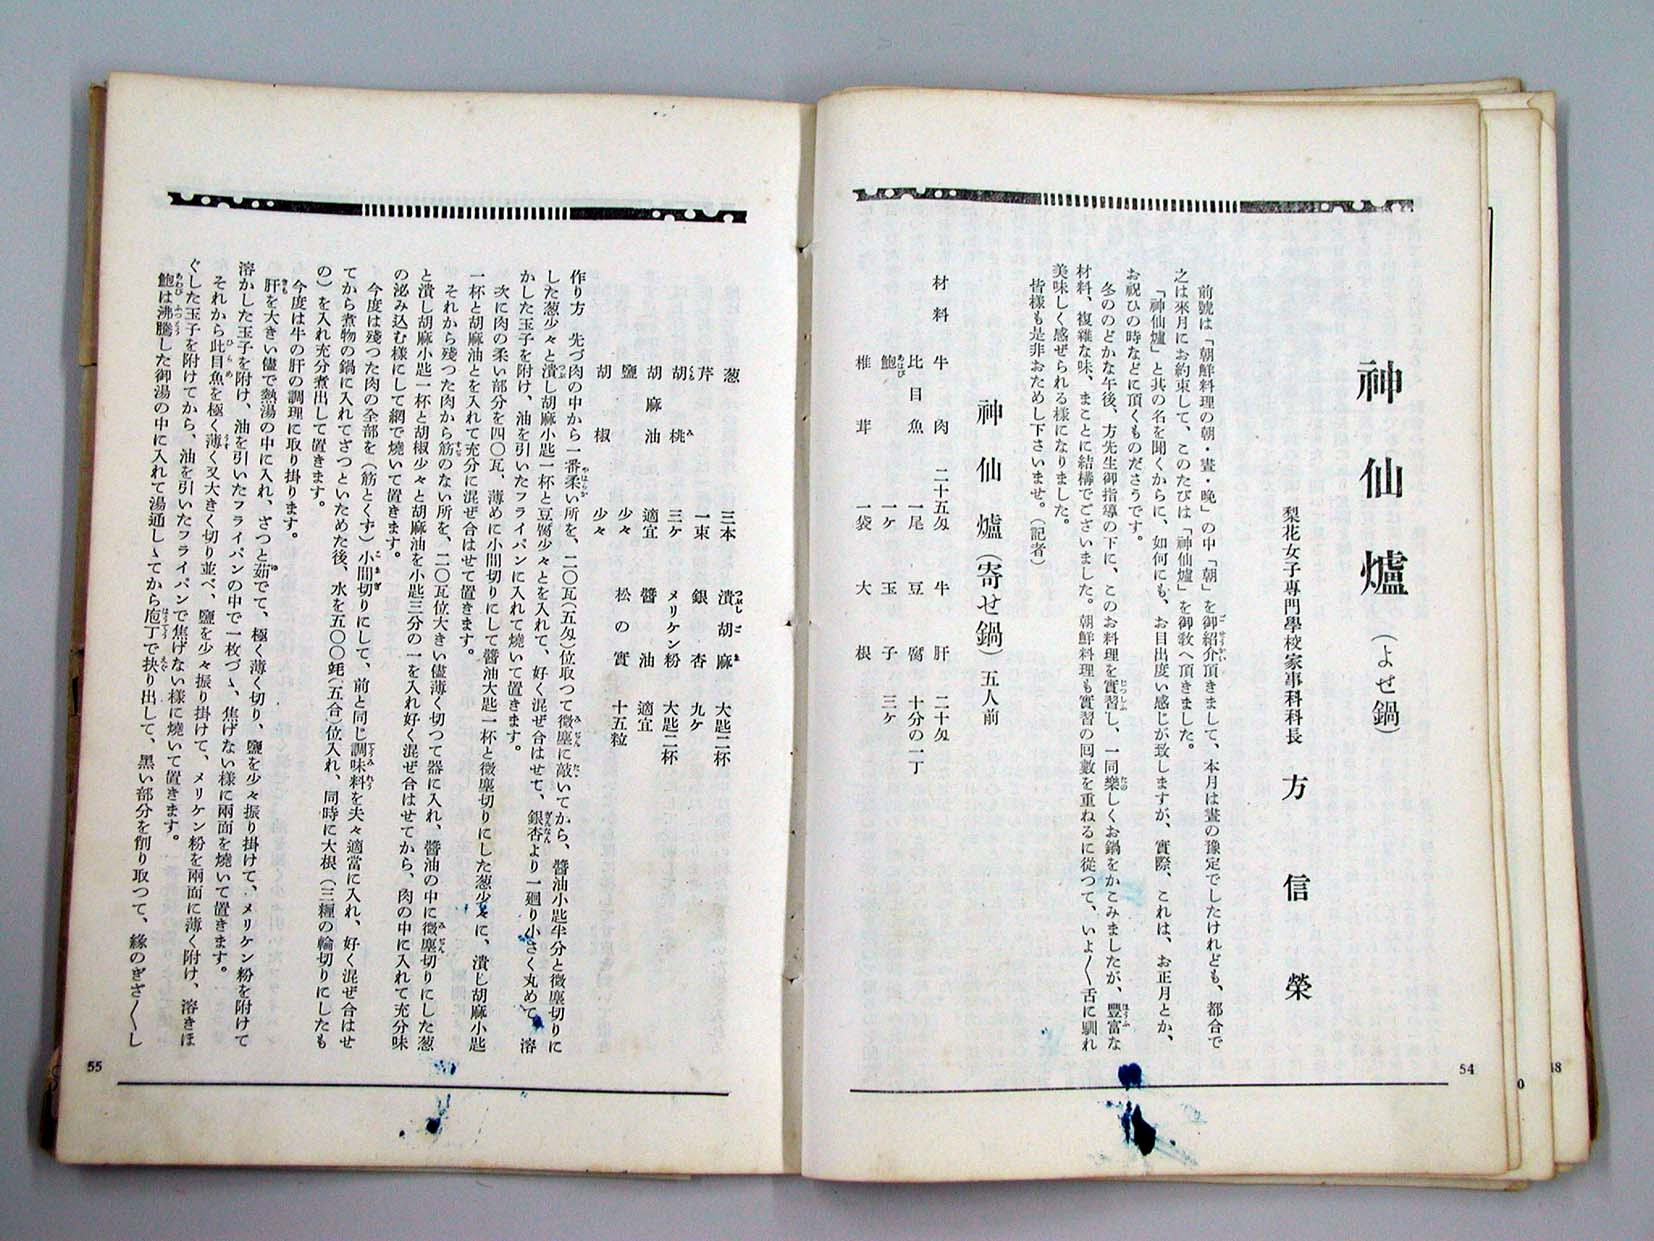 神仙爐(よせ鍋)
梨花女子專門學校家事科科長 方信榮
前號は「朝鮮料理の朝・晝・晩」の中「朝」を御紹介頂きまして、本月は晝の豫定でしたけれども、都合で
之は來月にお約束して、このたびは「神仙爐」を御敎へ頂きました。
「神仙爐」と其の名を聞くからに、如何にも、お目出度い感じが致しますが、實際、これは、お正月とか、
お祝ひの時などに頂くものださうです。
冬ののどかな午後、方先生御指導の下に、このお料理を實習し、一同樂しくお鍋をかこみましたが、豐富な
材料、複雜な味、まことに結構でございました。朝鮮料理も實習の回數を重ねるに從つて、いよ〳〵舌に馴れ
美味しく感ぜられる樣になりました。
皆樣も是非おためし下さいませ。(記者)
神仙爐(寄せ鍋)五人前
材料 牛肉 二十五匁 牛肝 二十匁
比目魚 一尾 豆腐 十分の一丁
鮑 一ケ 玉子 三ケ
椎茸 一袋 大根
54
葱 三本 潰胡麻 大匙二杯
芹 一束 銀杏 九ケ
胡桃 三ケ メリケン粉 大匙二杯
胡麻油 適宜 醬油 適宜
鹽 少々 松の實 十五粒
胡椒 少々
作り方 先づ肉の中から一番柔い所を、二〇瓦(五匁)位取つて微塵に敲いてから、醬油小匙半分と微塵切りに
した葱少々と潰し胡麻小匙一杯と豆腐少々とを入れて、好く混ぜ合はせて、銀杏より一廻り小さく丸めて、溶
かした玉子を附け、油を引いたフライパンに入れて燒いて置きます。
次に肉の柔い部分を四〇瓦、薄めに小間切りにして醬油大匙一杯と微塵切りにした葱少々に、潰し胡麻小匙
一杯と胡麻油とを入れて充分に混ぜ合はせて置きます。
それから殘つた肉から筋のない所を、二〇瓦位大きい儘薄く切つて器に入れ、醬油の中に微塵切りにした葱
と潰し胡麻小匙一杯と胡椒少々と胡麻油を小匙三分の一を入れ好く混ぜ合はせてから、肉の中に入れて充分味
の泌み込む樣にして網で燒いて置きます。
今度は殘つた肉の全部を(筋とくず)小間切りにして、前と同じ調味料を夫々適當に入れ、好く混ぜ合はせ
てから煮物の鍋に入れてざつといためた後、水を五〇〇竓(五合)位入れ、同時に大根(三糎の輪切りにしたも
の)を入れ充分煮出して置きます。
今度は牛の肝の調理に取り掛ります。
肝を大きい儘で熱湯の中に入れ、ざつと茹でて、極く薄く切り、鹽を少々振り掛けて、メリケン粉を附けて
溶かした玉子を附け、油を引いたフライパンの中で一枚づゝ、焦げない樣に兩面を燒いて置きます。
それから此目魚を極く薄く又大きく切り並べ、鹽を少々振り掛けて、メリケン粉を兩面に薄く附け、溶きほ
ぐした玉子を附けてから、油を引いたフライパンで焦げない樣に燒いて置きます。
鮑は沸騰した御湯の中に入れて湯通しゝてから庖丁で抉り出して、黑い部分を削り取つて、緣のぎざ〳〵し
55
0
48